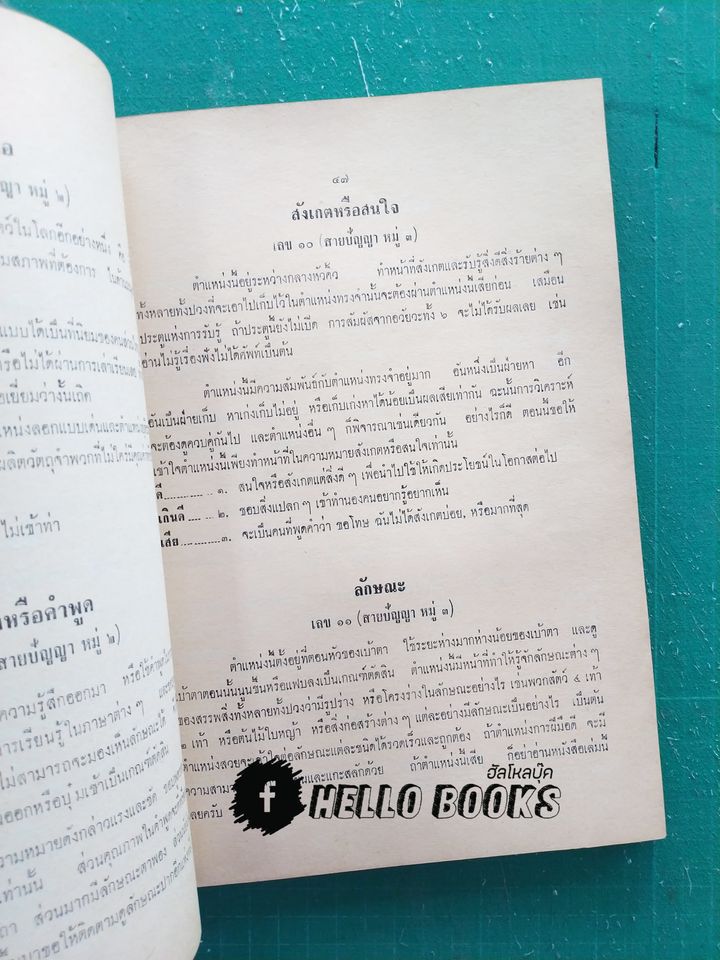 อ
ญา หมู่ ๒)
ตว์ในโลกอีกอย่างหนึ่ง คือ
มสภาพที่ต้องการ
แบบได้เป็นที่นิยมของคน
หรือไม่ได้ผ่านการเล่าเรียน
อเยี่ยมว่างั้นเถิด
แหน่งลอกแบบเด่นและตำแหน่ง
ผลิตวัตถุจำพวกที่ไม่
ไม่เข้าท่า
หรือคำพูด
สายปัญญา หมู่ ๒)
ความรู้สึกออกมา หรือใช้คำพูด
การเรียนรู้ในภาษาต่าง ๆ
ไม่สามารถจะมองเห็นลักษณะได้
ออกหรือบุ๋มเข้าเป็นเกณฑ์ตัดสิน
ความหมายดังกล่าวแรงและชัด
เท่านั้น ส่วนคุณภาพในคำพูด
ถา ส่วนมากมีลักษณะตาพอง
ขอให้ติดตามดูลักษณะปาก
๔๗
สังเกตหรือสนใจ
เลข ๑๐ (สายปัญญา หมู่ ๓)
ตำแหน่งนี้อยู่ระหว่างกลางหัวคิ้ว ทำหน้าที่สังเกตและรับรู้สิ่งดีสิ่งร้ายต่าง ๆ
ทั้งหลายทั้งปวงที่จะเอาไปเก็บไว้ในตำแหน่งทรงจำนั้นจะต้องผ่านตำแหน่งนี้เสียก่อน เสมือน
ประตูแห่งการรับรู้ ถ้าประตูนี้ยังไม่เปิด การสัมผัสจากอวัยวะทั้ง ๖ จะไม่ได้รับผลเลย เช่น
อ่านไม่รู้เรื่องฟังไม่ได้ศัพท์เป็นต้น
ตำแหน่งนี้มีความสัมพันธ์กับตำแหน่งทรงจำอยู่มาก อันหนึ่งเป็นฝ่ายหา อีก
อันเป็นฝ่ายเก็บ หาเก่งเก็บไม่อยู่ หรือเก็บเก่งหาได้น้อยเป็นผลเสียเท่ากัน ฉะนั้นการวิเคราะห์
จะต้องดูควบคู่กันไป และตำแหน่งอื่น ๆ ก็พิจารณาเช่นเดียวกัน อย่างไรก็ดี ตอนนี้ขอให้
เข้าใจตำแหน่งนี้เพียงทำหน้าที่ในความหมายสังเกตหรือสนใจเท่านั้น
ดี.............. ๑. สนใจหรือสังเกตแต่สิ่งดี ๆ เพื่อนำไปใช้ให้เกิดประโยชน์ในโอกาสต่อไป
เกินดี ....... ๒. ชอบสิ่งแปลก ๆ เข้าทำนองคนอยากรู้อยากเห็น
เสีย ............๓. จะเป็นคนที่พูดคำว่า ขอโทษ ฉันไม่ได้สังเกตบ่อย, หรือมากที่สุด
ลักษณะ
เลข ๑๑ (สายปัญญา หมู่ ๓)
ตำแหน่งนี้ตั้งอยู่ที่ตอนหัวของเบ้าตา ใช้ระยะห่างมากห่างน้อยของเบ้าตา และดู
เบ้าตาตอนนั้นนูนขึ้นหรือแฟบลงเป็นเกณฑ์ตัดสิน ตำแหน่งนี้มีหน้าที่ทำให้รู้จักลักษณะต่าง ๆ
ของสรรพสิ่งทั้งหลายทั้งปวงว่ามีรูปร่าง หรือโครงร่างในลักษณะอย่างไร เช่นพวกสัตว์ ๔ เท้า
๒ เท้า หรือต้นไม้ใบหญ้า หรือสิ่งก่อสร้างต่าง ๆ แต่ละอย่างมีลักษณะเป็นอย่างไร เป็นต้น
ตำแหน่งสวยจะเข้าใจต่อลักษณะแต่ละชนิดได้รวดเร็วและถูกต้อง ถ้าตำแหน่งการฝีมือดี จะมี
ความสามา และแกะสลักด้วย ถ้าตำแหน่งนี้เสีย ก็อย่าอ่านหนังสือเล่มนี้
เลยครับ
f
ฮัลโหลบุ๊ค
HELLO BOOKS